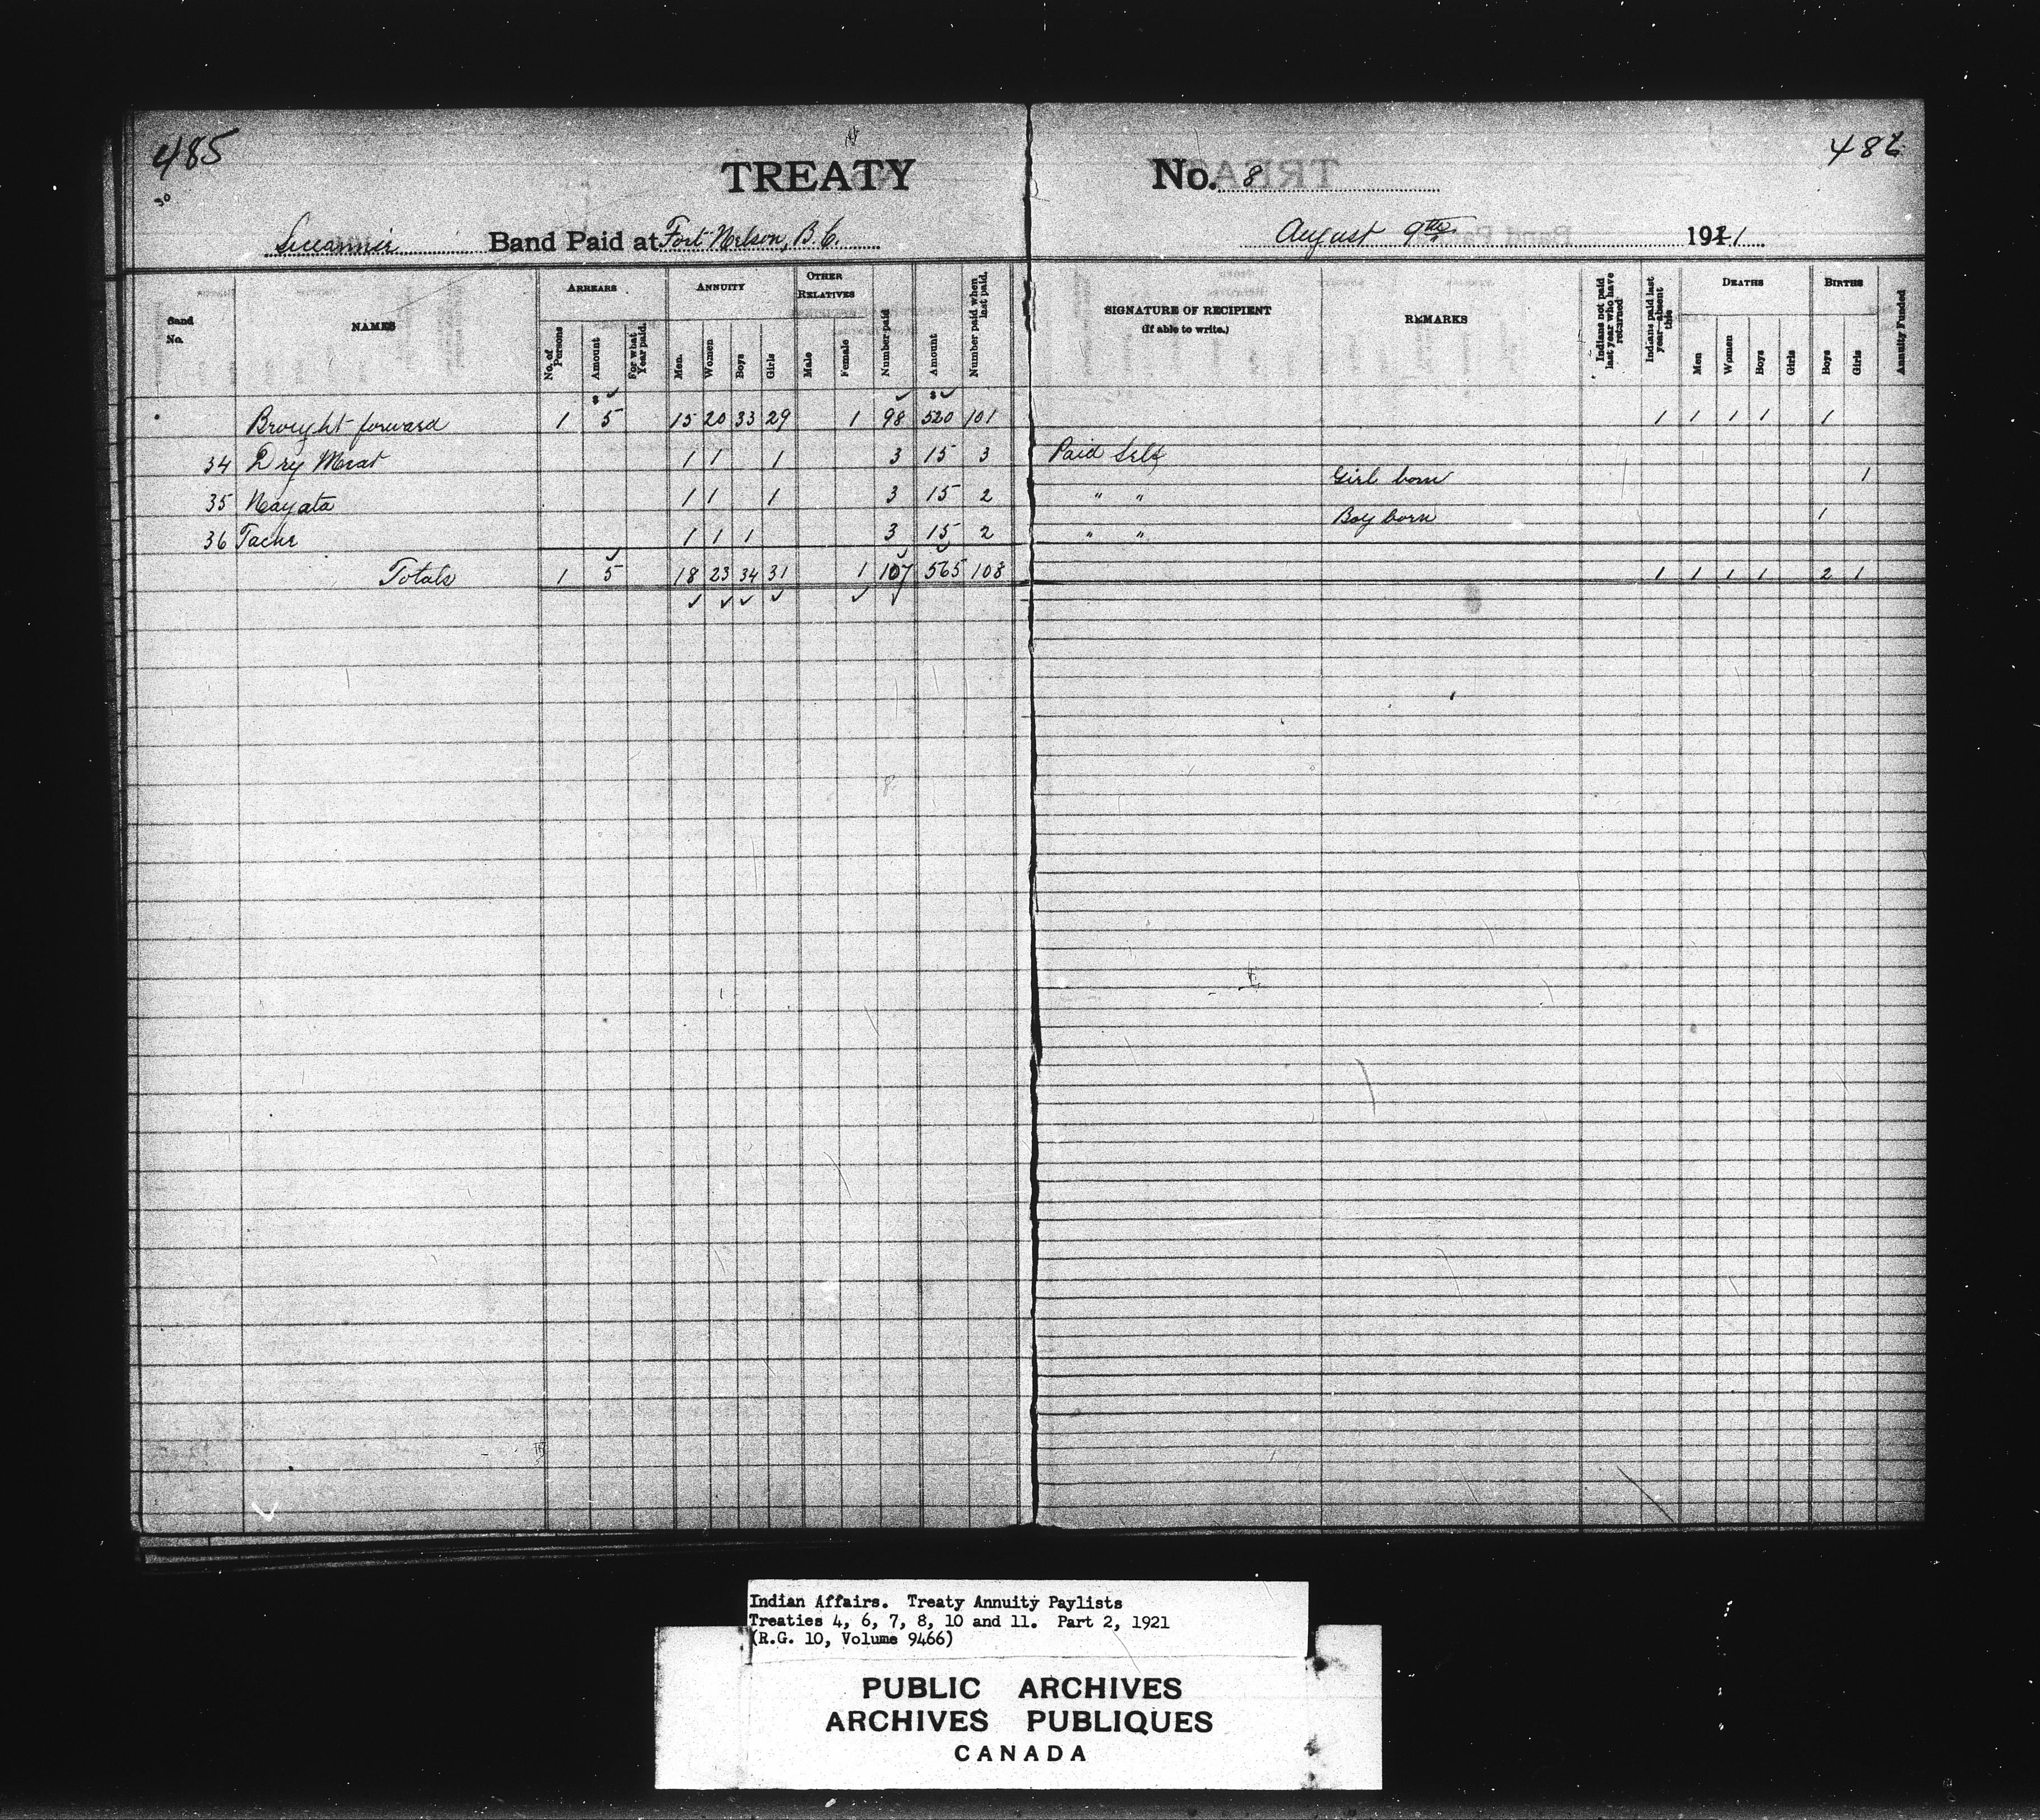 485
486
30
TREATY No. 8
Siccannie Band Paid at Fort Nelson, B.C. August 9th 1921
Band No.
NAMES
ARREARS
No. of Persons
Amount
For what Year paid.
ANNUITY
Men.
Women
Boys
Girls
OTHER RELATIVES
Male
Female
Number paid
Amount
Number paid when last paid.
SIGNATURE OF RECIPIENT
(If able to write.)
REMARKS
Indians not paid last year who have returned
Indians paid last year—absent this
DEATHS
Men
Women
Boys
Girls
BIRTHS
Boys
Girls
Annuity Funded
Brought forward 1 5 15 20 33 29 1 98 520 101 1 1 1 1 1
34 Dry Meat 1 1 1 3 15 3 Paid Self
35 Nayata 1 1 1 3 15 2 " " Girl born 1
36 Tache 1 1 1 3 15 2 " " Boy born 1
Totals 1 5 18 23 34 31 1 107 565 108 1 1 1 1 2 1
Indian Affairs. Treaty Annuity Paylists
Treaties 4, 6, 7, 8, 10 and 11. Part 2, 1921
(R.G. 10, Volume 9466)
PUBLIC ARCHIVES
ARCHIVES PUBLIQUES
CANADA